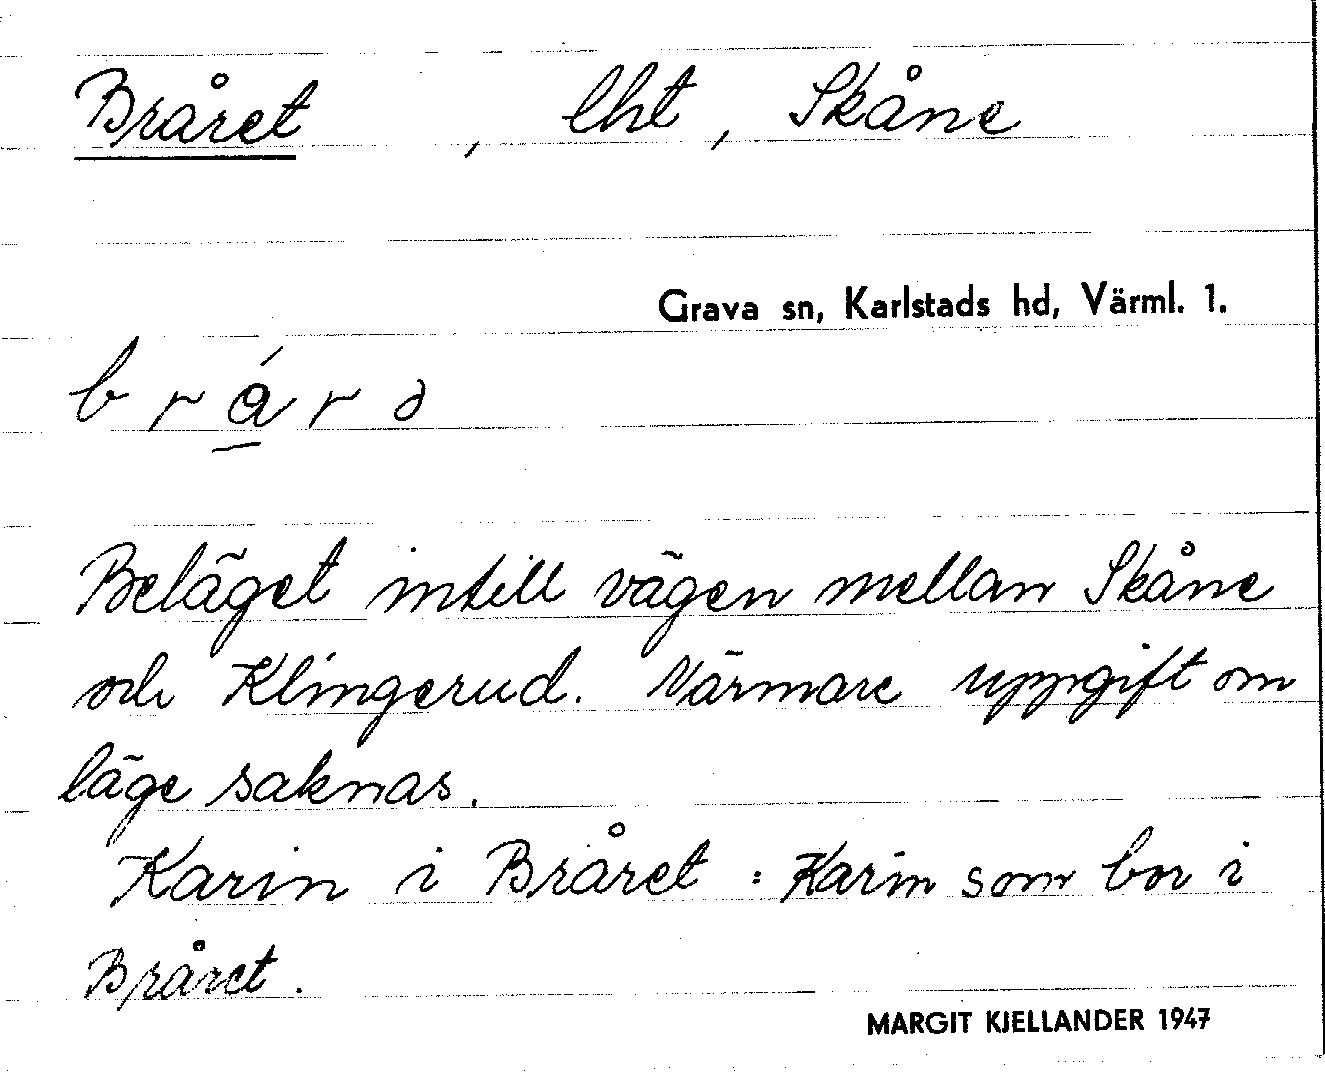 Bråret , lht , Skåne
Grava sn, Karlstads hd, Värml. 1.
b r á̱ r ə
Beläget intill vägen mellan Skåne
och Klingerud. Närmare uppgift om
läge saknas.
Karin i Bråret : Karin som bor i
Bråret.
MARGIT KJELLANDER 1947